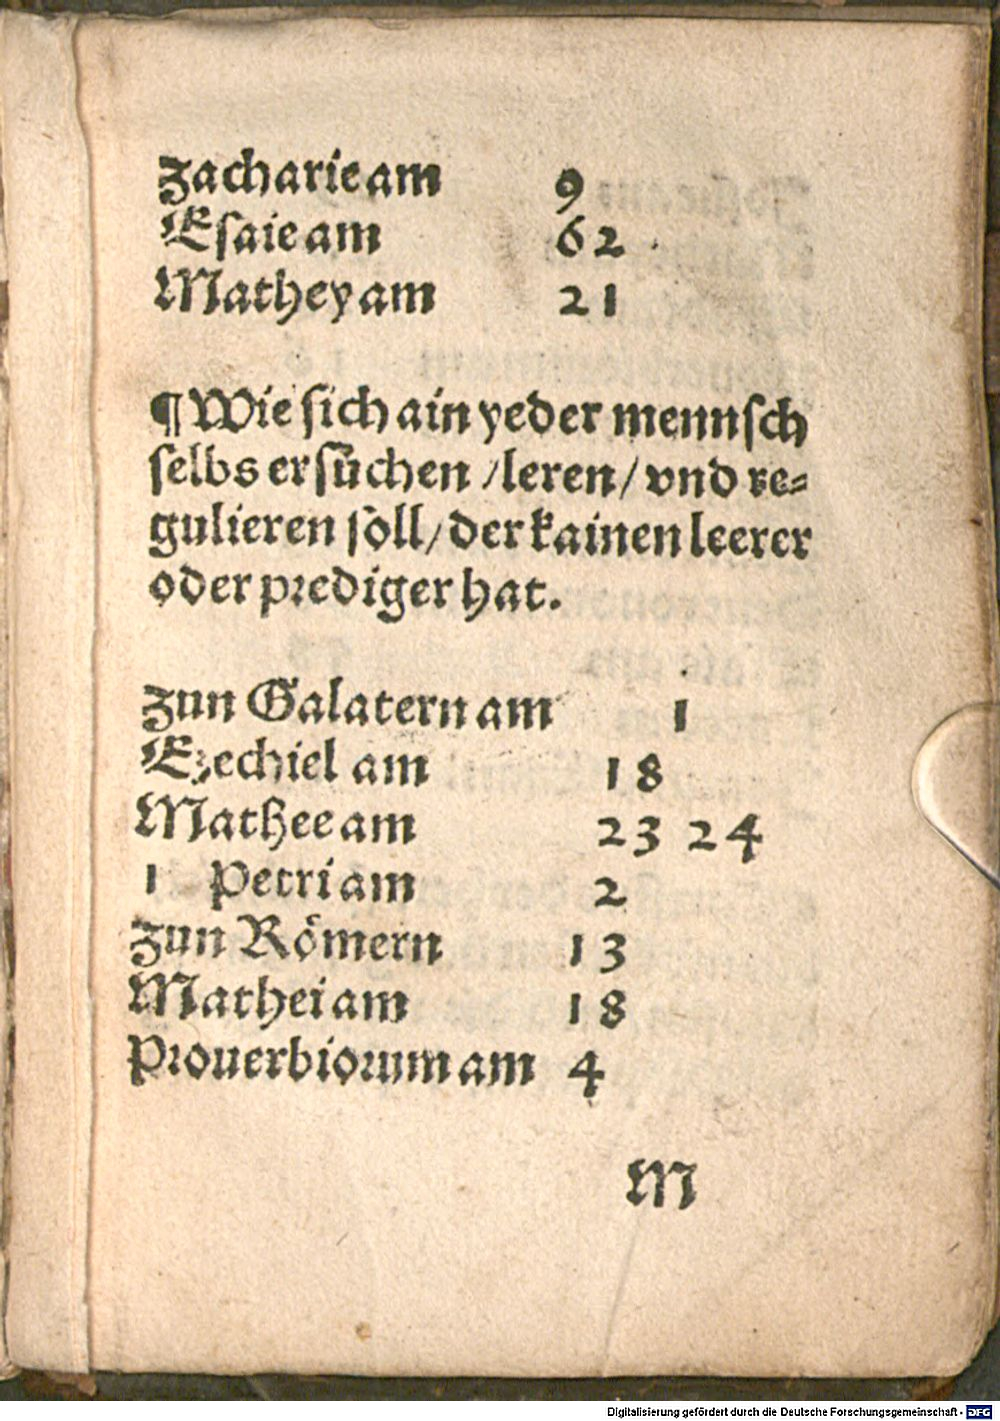 Zacharie am 9
Esaie am 62
Mathey am 21
¶ Wie sich ain yeder mennsch
selbs ersůchen / leren / vnd re⸗
gulieren söll / der kainen leerer
oder prediger hat.
Zun Galatern am 1
Ezechiel am 18
Mathee am 23 24
1 Petri am 2
Zun Römern 13
Mathei am 18
Prouerbiorum am 4
M
Digitalisierung gefördert durch die Deutsche Forschungsgemeinschaft - DFG